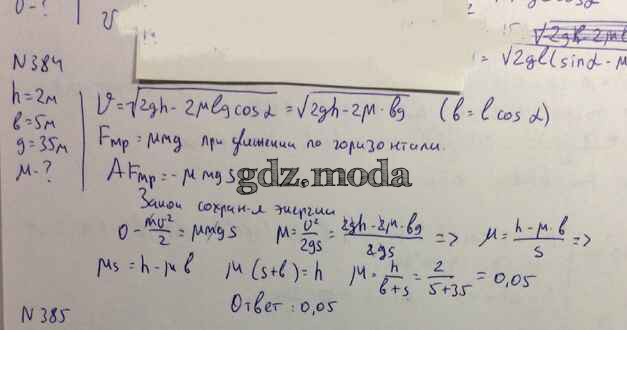 υ - ?
υ
√2gl(sinα - μ
N 384
h = 2м
b = 5м
g = 35м
μ - ?
υ = √2gh - 2μlg cosα = √2gh - 2μ·bg (b = l cosα)
Fтр = μmg при движении по горизонтали.
AFтр = - μmgs
gdz.moda
Закон сохран-я энергии
0 - mυ²/2 = μmgs μ = υ²/2gs = 2gh - 2μ·bg/2gs => μ = h - μ·b/s =>
μs = h - μb μ(s+b) = h μ = h/b+s = 2/5+35 = 0,05
Ответ: 0,05
N 385